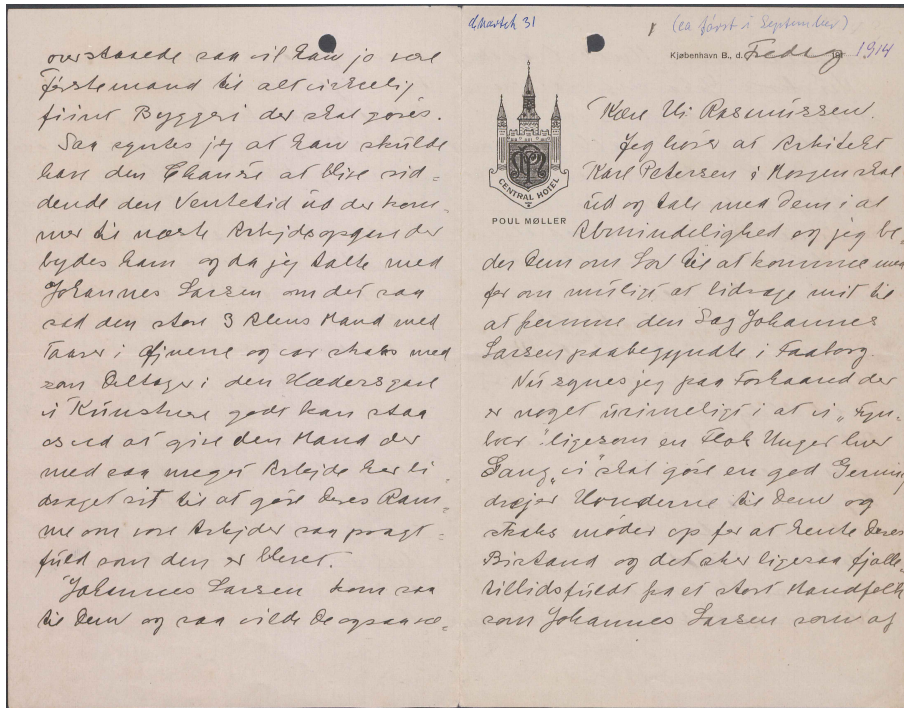 overstaaede saa vil han jo være
Förstemand til alt virkelig
fiint Byggeri der skal göres.
Saa syntes jeg at han skulde
have den Chanse at blive sid=
dende den Ventetid ud der kom=
mer til næste Arbejdsopgave der
bydes ham og da jeg talte med
Johannes Larsen om det saa
sad den store 3 Alens Mand med
Taarer i Öjnene og var straks med
som Deltager i den Hædersgave
vi Künstnere godt kan staa
os ved at give den Mand der
med saa meget Arbejde har bi
draget sit til at göre Deres Ram=
me om vore Arbejder saa pragt=
füld som den er blevet.
Johannes Larsen kom saa
til Dem og saa vilde De ogsaa væ=
31
(ca först i September)
Kjøbenhavn B., d. Fredag 191 1914
CENTRAL HOTEL
POUL MØLLER
Kære Hr. Rasmüssen.
Jeg hörer at Arkitekt
Karl Petersen i Morgen skal
üd og tale med Dem i al
Almindelighed og jeg be=
der Dem om Lov til at komme med
for om müligt at bidrage mit til
at fremme den Sag Johannes
Larsen paabegyndte i Faaborg.
Nü synes jeg paa Forhaand der
er noget ürimeligt i at vi „Fyn=
boer" ligesom en Flok Unger hver
Gang „vi" skal göre en god Gerning
drejer Hovederne til Dem og
straks möder op for at hente Deres
Bistand og det sker ligesaa fjolle=
tillidsfüldt fra et stort Mandfolk
som Johannes Larsen som af